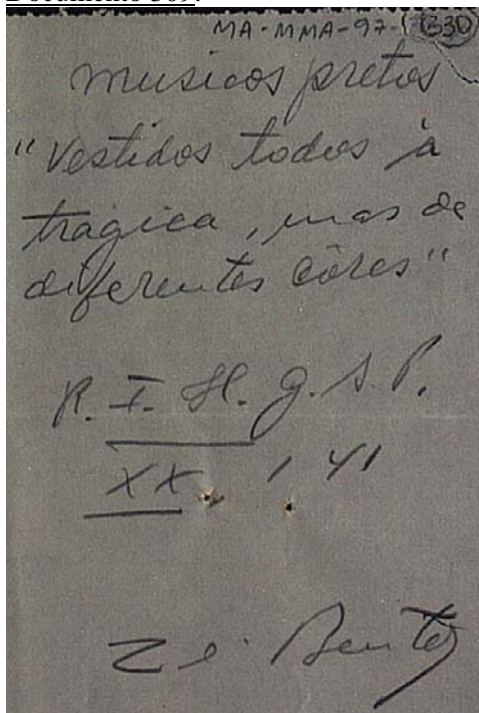 MA-MMA-97-(330)
musicos pretos
"vestidos todos à
tragica, mas de
diferentes côres"
R. I. H. G. S. P.
XX, 141
Zé Bento